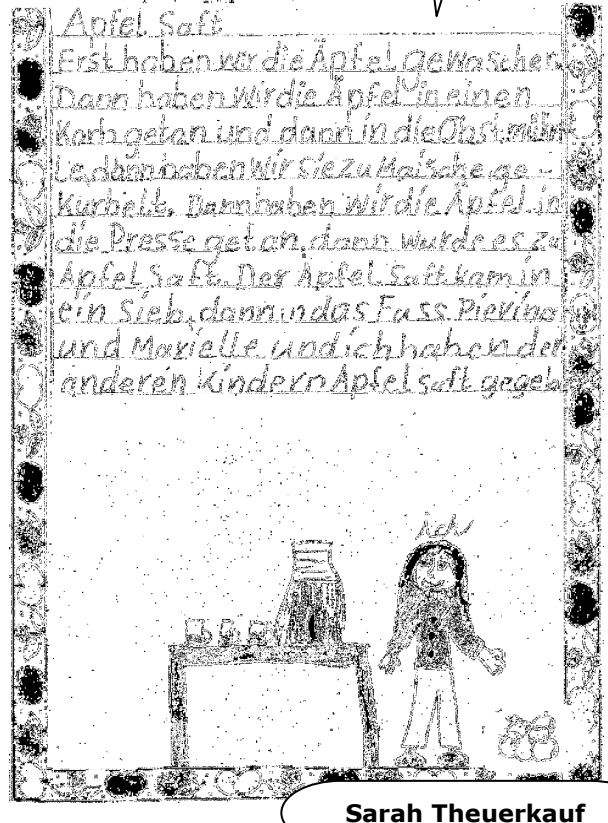 Apfel Saft
Erst haben wir die Äpfel gewaschen.
Dann haben wir die Äpfel in einen
Korb getan und dann in die Obstmüh
le, dann haben wir sie zu Maische ge-
kurbelt. Dann haben wir die Äpfel in
die Presse getan, dann wurde es zu
Apfel Saft. Der Apfel Saft kam in
ein Sieb, dann in das Fass. Pierina
und Marielle und ich haben den
anderen Kindern Apfelsaft gegeb
ich
Sarah Theuerkauf